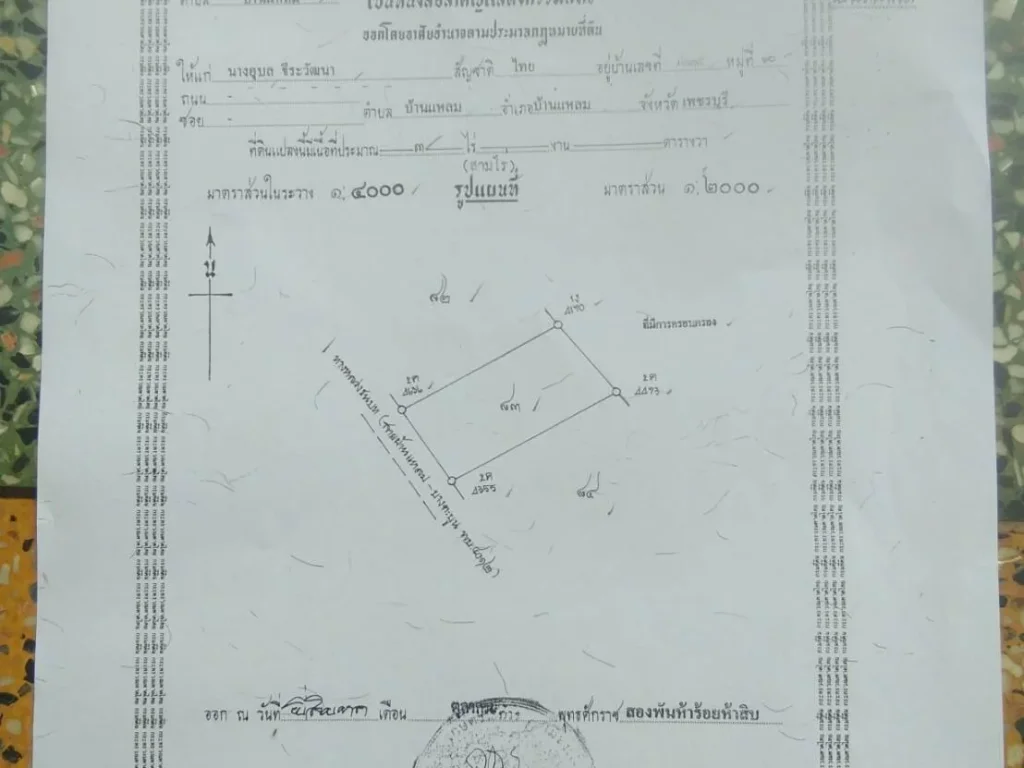 ออกโดยอาศัยอำนาจตามประมวลกฎหมายที่ดิน
ให้แก่ นางยุบล ชีระวัฒนา สัญชาติ ไทย อยู่บ้านเลขที่ หมู่ที่ ๑๐
ถนน -
ซอย - ตำบล บ้านแหลม อำเภอ บ้านแหลม จังหวัด เพชรบุรี
ที่ดินแปลงนี้มีเนื้อที่ประมาณ ๓ ไร่ - งาน ตารางวา
(สามไร่)
มาตราส่วนในระวาง ๑:๔๐๐๐ รูปแผนที่ มาตราส่วน ๑:๒๐๐๐
น
๘๒
ที่มีการครอบครอง
๘๓
ทางหลวงชนบท (สายบ้านแหลม - บางตะบูน
๘๔
ออก ณ วันที่ ยี่สิบ เดือน ตุลาคม พุทธศักราช สองพันห้าร้อยห้าสิบ